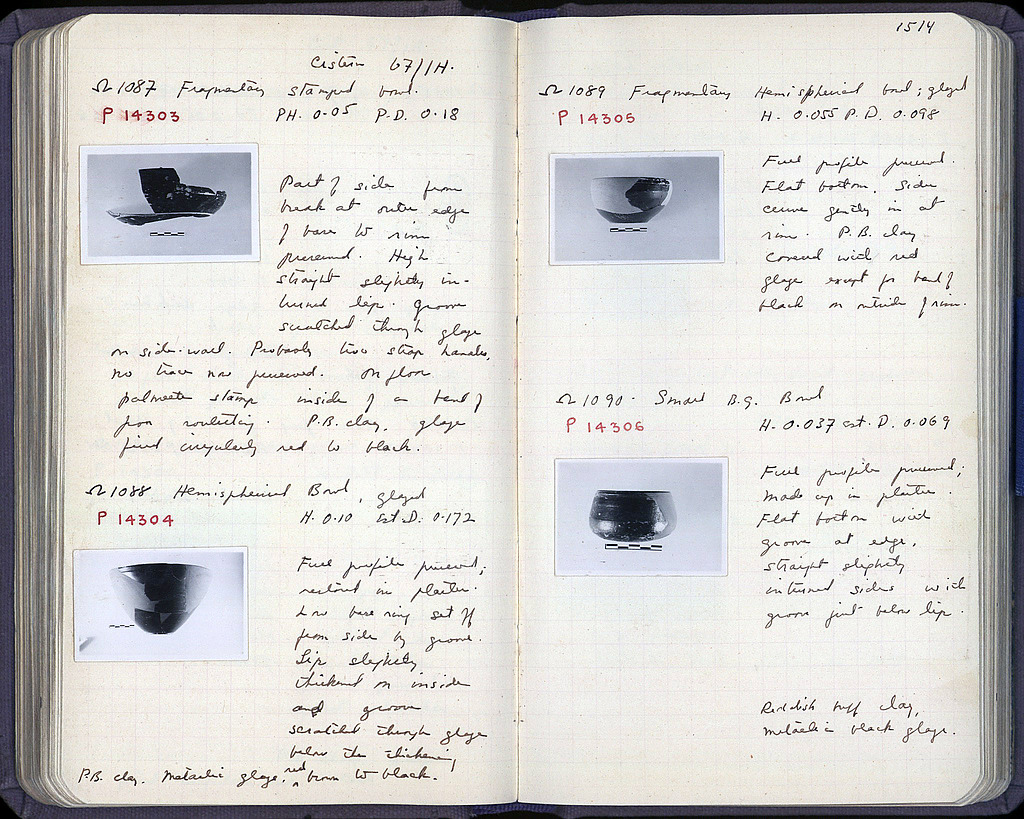 Cistern 67/1H.
Ω 1087 Fragmentary stamped bowl.
P 14303 PH. 0.05 P.D. 0.18
Part of side from
break at outer edge
of base to rim
preserved. High
straight slightly in-
turned lip. groove
scratched through glaze
on side-wall. Probably two strap handles,
no trace now preserved. On floor
palmette stamp inside of a band of
rouletting. P.B. clay, glaze
fired irregularly red to black.
Ω 1088 Hemispherical Bowl, glazed
P 14304 H. 0.10 Est. D. 0.172
Full profile preserved;
restored in plaster.
Low base ring set off
from side by groove.
Lip slightly
thickened on inside
and groove
scratched through glaze
below the thickening
P.B. clay. Metallic glaze, red brown to black.
1514
Ω 1089 Fragmentary Hemispherical bowl; glazed
P 14305 H. 0.055 P.D. 0.098
Full profile preserved.
Flat bottom. Sides
curve gently in at
rim. P.B. clay
covered with red
glaze except for band of
black on outside of rim.
Ω 1090. Small B.G. Bowl
P 14306 H. 0.037 est. D. 0.069
Full profile preserved;
made up in plaster.
Flat bottom with
groove at edge,
straight slightly
inturned sides with
groove just below lip.
Reddish buff clay,
metallic black glaze.